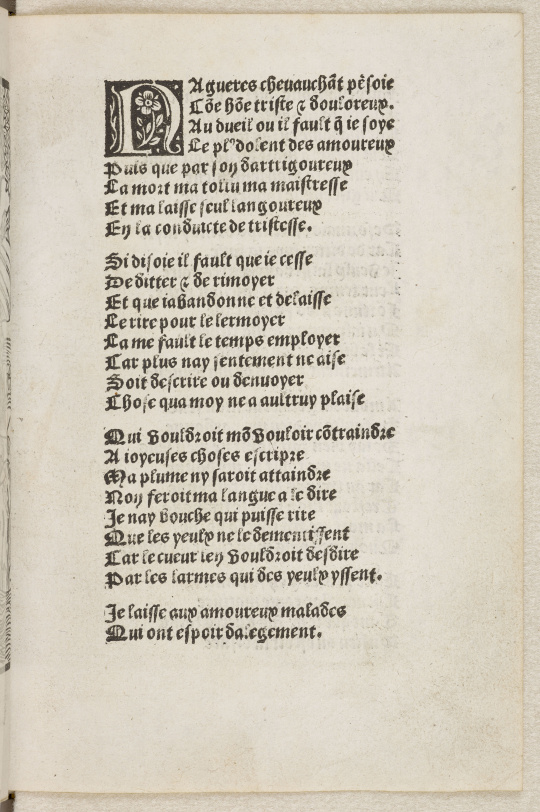 NAgueres cheuauchāt pēsoie
Cōe hōe triste ⁊ douloreux.
Au dueil ou il fault q̄ ie soye
Le plꝰ dolent des amoureux
Puis que par son dart rigoureux
La mort ma tollu ma maistresse
Et ma laisse seul langoureux
En la conduicte de tristesse.

Si disoie il fault que ie cesse
De ditter ⁊ de rimoyer
Et que iabandonne et delaisse
Le rire pour le lermoyer
La me fault le temps employer
Car plus nay sentement ne aise
Soit descrire ou denuoyer
Chose qua moy ne a aultruy plaise

Qui vouldroit mō vouloir cōtraindre
A ioyeuses choses escripre
Ma plume ny saroit attaindre
Non feroit ma langue a le dire
Je nay bouche qui puisse rire
Que les yeulx ne le dementissent
Car le cueur len vouldroit desdire
Par les larmes qui des yeulx yssent.

Je laisse aux amoureux malades
Qui ont espoir dalegement.